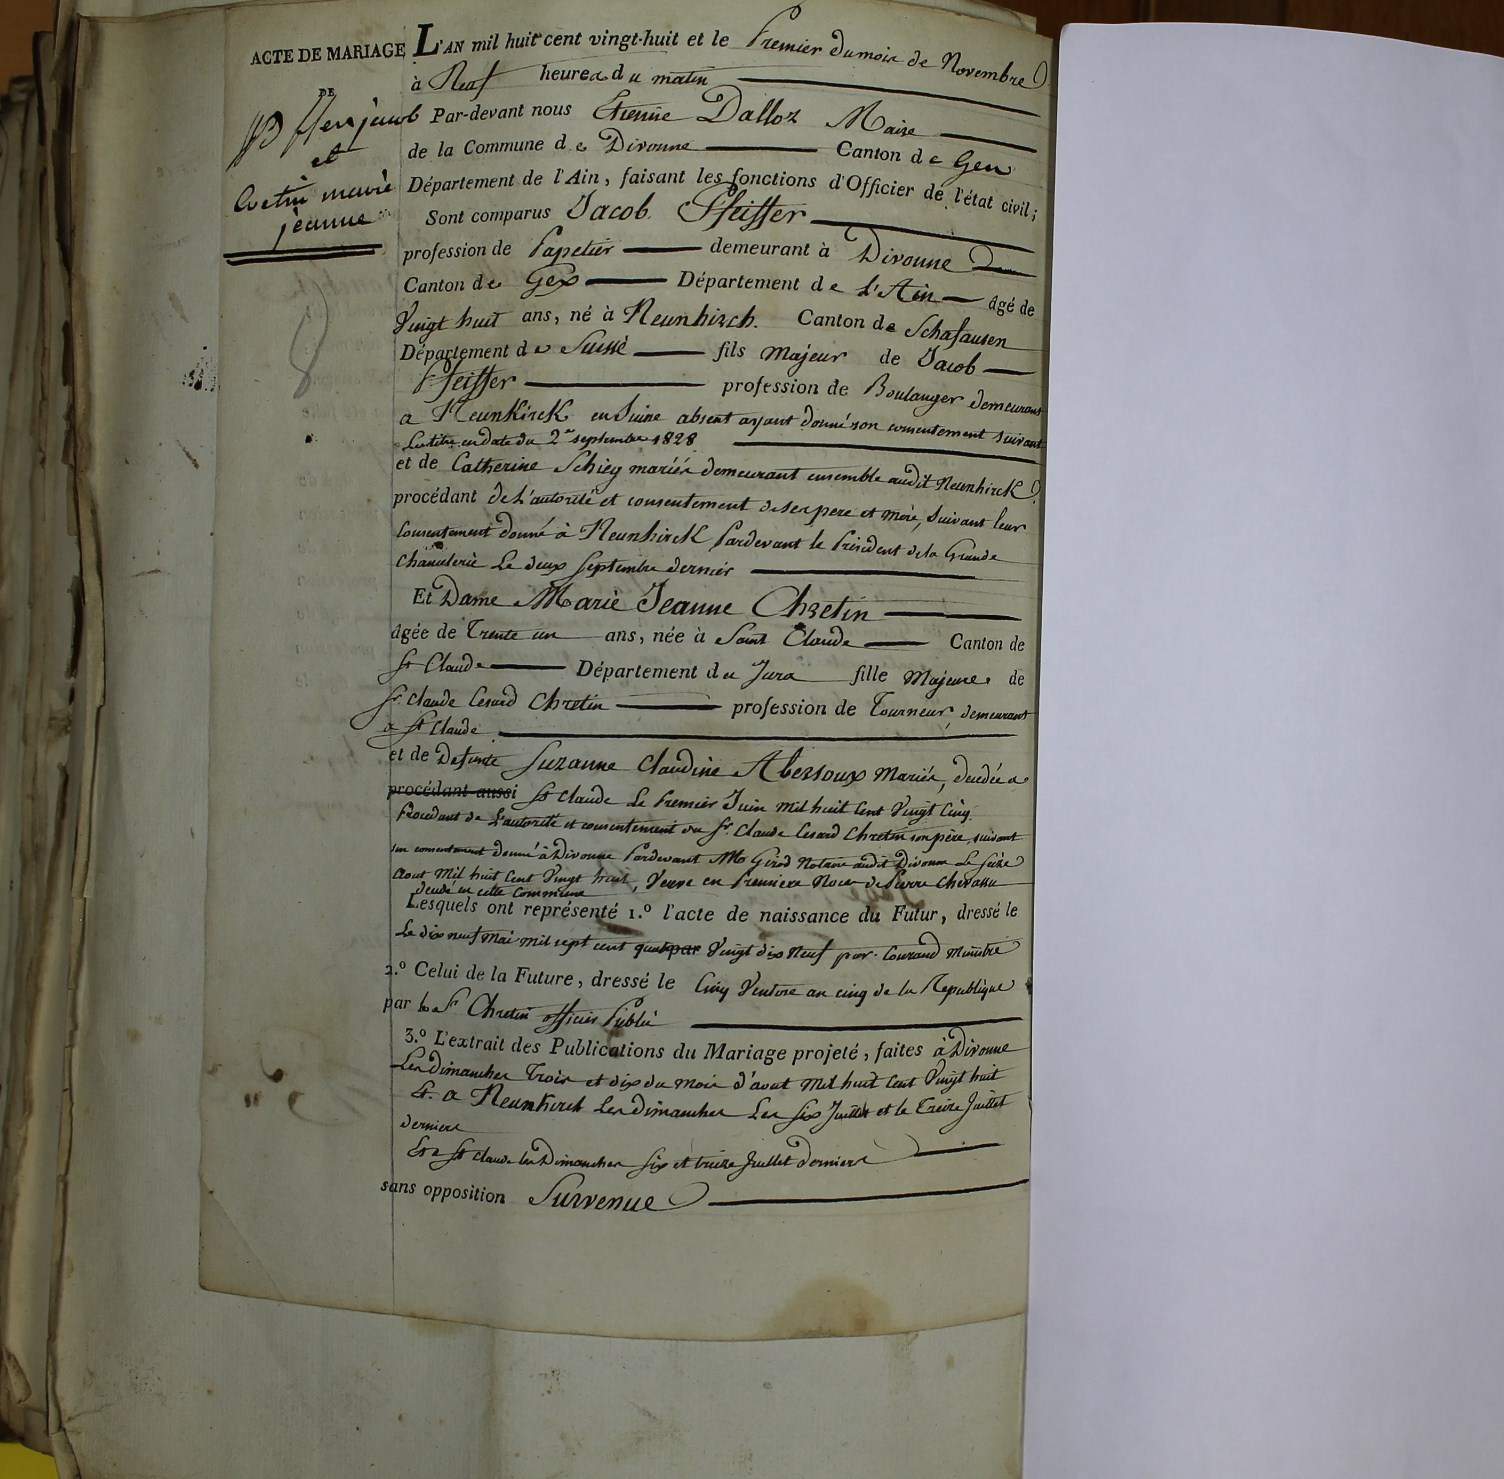 ACTE DE MARIAGE
DE
et
marie
jeanne
L'AN mil huit cent vingt-huit et le Premier du mois de Novembre
à Neuf heures du matin
Par-devant nous Etienne Dalloz Maire
de la Commune de Divonne Canton de Gex
Département de l'Ain, faisant les fonctions d'Officier de l'état civil;
Sont comparus Jacob Pfeiffer
profession de Papetier demeurant à Divonne
Canton de Gex Département de L'Ain âgé de
Vingt huit ans, né à Neunkirch. Canton de Schafausen
Département de Suisse fils Majeur de Jacob
Pfeiffer profession de Boulanger demeurant
a Neunkirck en Suisse absent ayant donné son consentement suivant
en date du 2e septembre 1828
et de Catherine Schiey mariés demeurant ensemble audit Neunkirck
procédant de L'autorité et consentement de ses pere et mere, suivant leur
Consentement donné à Neunkirck Pardevant le Président de la Grande
Chancelerie Le deux Septembre dernier
Et Dame Marie Jeanne Chretin
âgée de Trente un ans, née à Saint Claude Canton de
St Claude Département du Jura fille Majeure de
Sr Claude Cesard Chretin profession de Tourneur, demeurant
a St Claude
et de Defunte Suzanne Claudine Abertoux Mariés, decedée a
procédant aussi St Claude Le Premier Juin Mil huit Cent Vingt Cinq
Procedant de L'autorité et consentement du Sr Claude Cesard Chretin son père, suivant
son consentement donné à Divonne Pardevant Me Girod Notaire audit Divonne Le Seize
Aout Mil huit Cent Vingt huit, Veuve en Premiere Noces de Pierre Chevassu
decedé en cette Commune
Lesquels ont représenté 1.º l'acte de naissance du Futur, dressé le
Le dix neuf Mai mil sept cent Vingt dix Neuf par Ministre
2.º Celui de la Future, dressé le Cinq Ventose an cinq de la Republique
par le Sr Chretin officier Public
3.º L'extrait des Publications du Mariage projeté, faites à Divonne
Les Dimanches Trois et dix du mois d'aout Mil huit Cent Vingt huit
Et a Neunkirck Les dimanches Les Six Juillet et le Treize Juillet
derniers
Et a St Claude les Dimanches Six et treize Juillet derniers
sans opposition Survenue